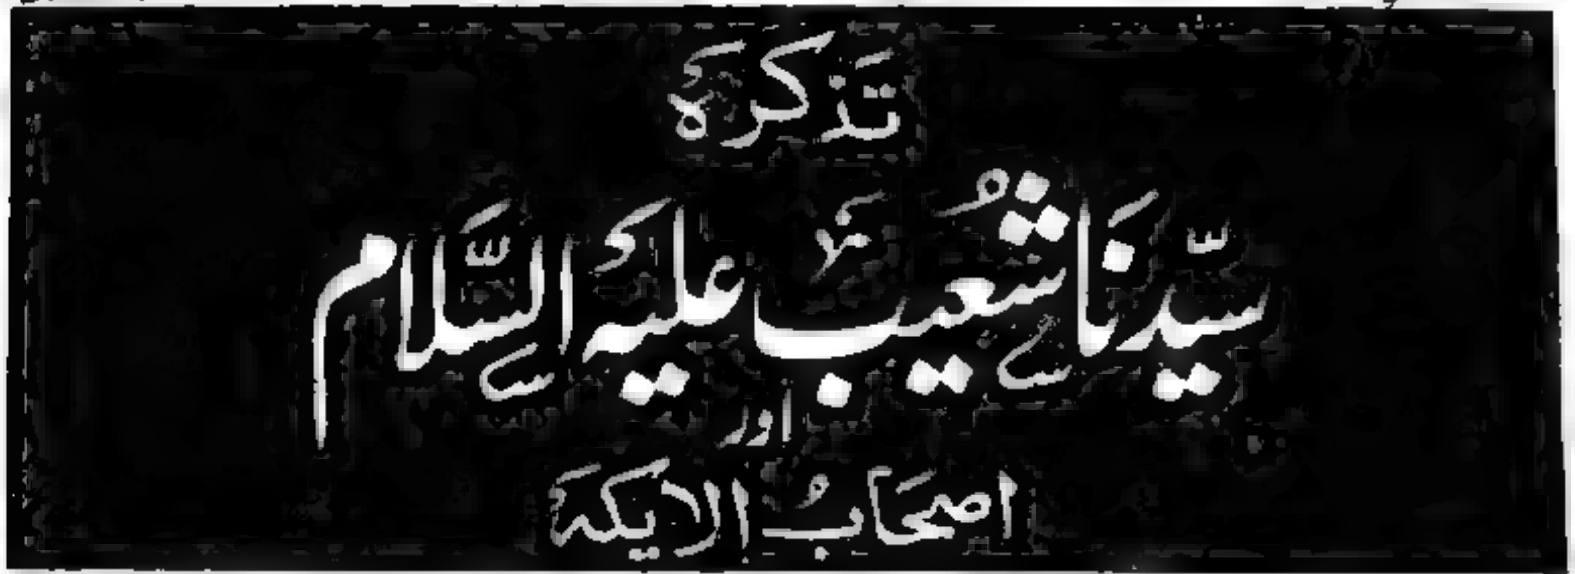 تَذکَرَہ
سَیِّدنَا شُعَیب عَلَیہِ السَّلَام
اور
اصحَابُ الایکَہ